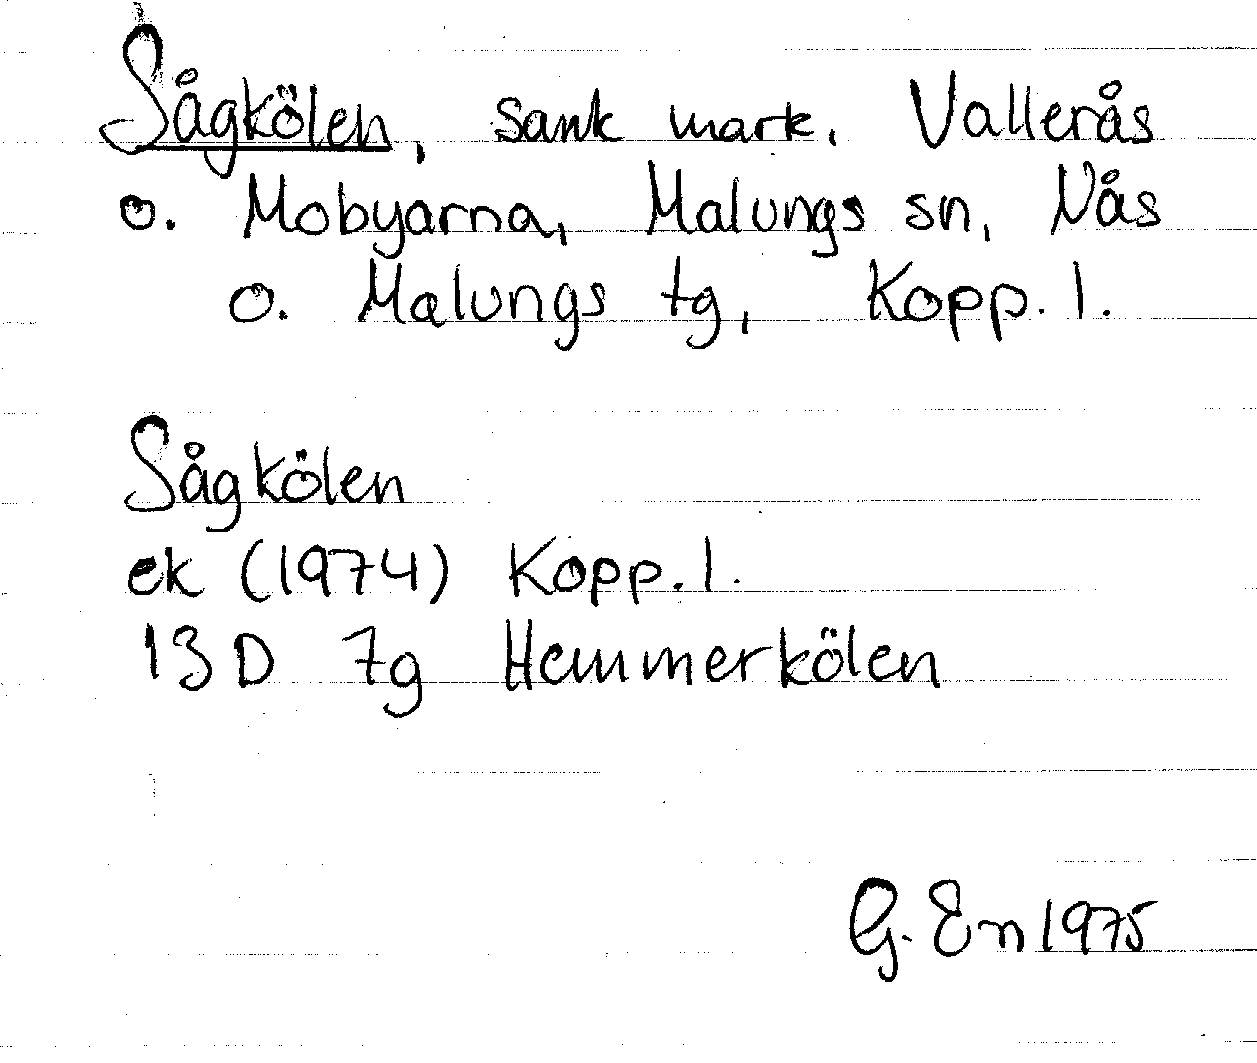 Sågkölen, sank mark. Vallerås
o. Mobyarna, Malungs sn, Nås
o. Malungs tg, Kopp. l.
Sågkölen
ek (1974) Kopp. l.
13 D 7g Hemmerkölen
G. En 1975